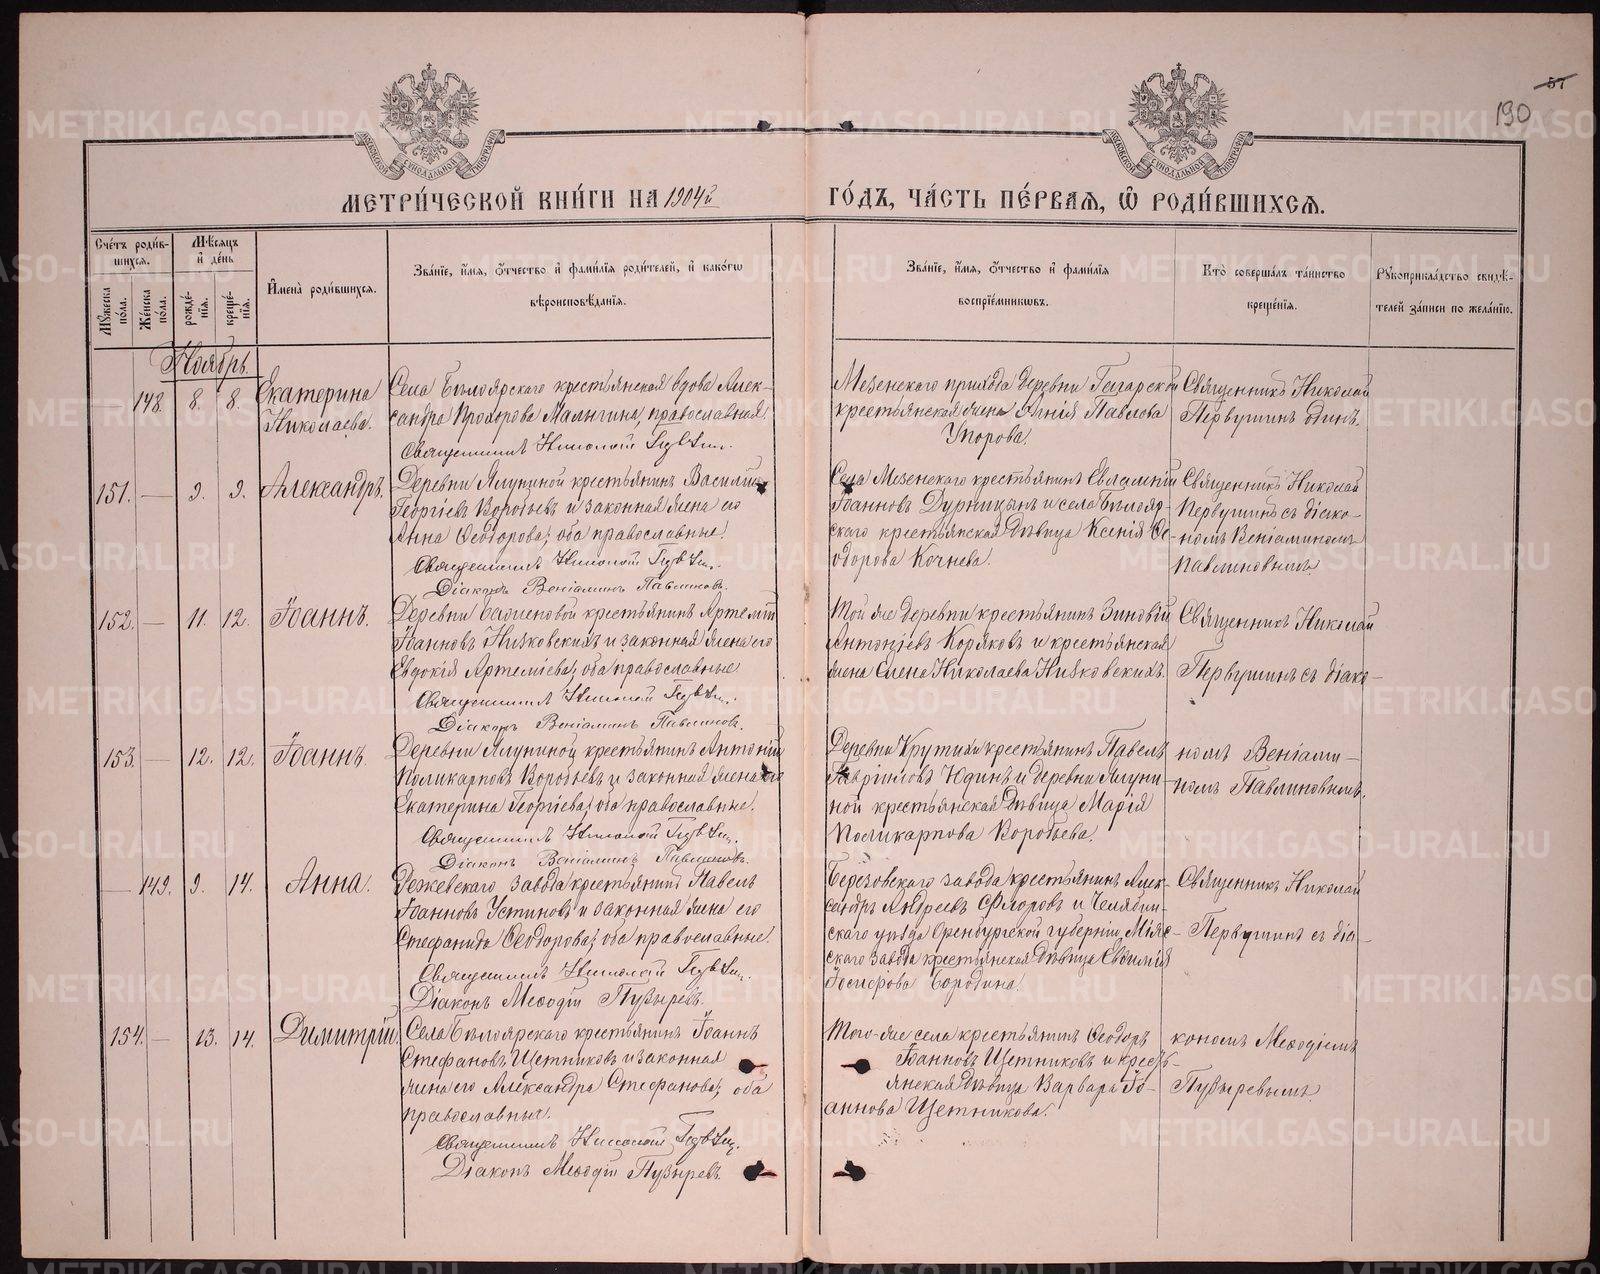 57
190
МОСКОВСКОЙ СѴНОДАЛЬНОЙ ТИПОГРАФІИ
МОСКОВСКОЙ СѴНОДАЛЬНОЙ ТИПОГРАФІИ
МЕТРИ́ЧЕСКОЙ КНИ́ГИ НА 1904й
ГО́ДЪ, ЧА́СТЬ ПЕ́РВАѦ, Ѽ РОДИ́ВШИХСѦ.
Сче́тъ роди́в-
шихсѧ.
Мꙋ́жеска по́ла.
Же́нска по́ла.
Мѣ́сѧцъ
и҆ де́нь
рожде́-
нїѧ.
креще́-
нїѧ.
И҆мена̀ роди́вшихсѧ.
Зва́нїе, и҆́мѧ, ѻ҆́тчество и҆ фами́лїѧ роди́телей, и҆ како́гѡ
вѣроисповѣ́данїѧ.
Зва́нїе, и҆́мѧ, ѻ҆́тчество и҆ фами́лїѧ
воспрїе́мникѡвъ.
Кто̀ соверша́лъ та́инство
креще́нїѧ.
Рꙋкоприкла́дство свидѣ́-
телей за́писи по жела́нїю.
Ноябрь.
148. 8. 8. Екатерина
Николаева.
Села Бѣлоярскаго крестьянская вдова Алек-
сандра Прохорова Малыгина, православная.
Священникъ Николай
Мезенскаго прихода деревни Гагарской
крестьянская жена Анна Павлова
Упорова.
Священникъ Николай
Первушинъ одинъ.
151. — 9. 9. Александръ.
Деревни Ялуниной крестьянинъ Василій
Георгіевъ Воробьевъ и законная жена его
Анна Ѳеодорова; оба православные.
Священникъ Николай
Діаконъ Веніаминъ Павлиновъ.
Села Мезенскаго крестьянинъ Евлампій
Іоанновъ Дурницынъ и села Бѣлояр-
скаго крестьянская дѣвица Ксенія Ѳе-
одорова Кочнева.
Священникъ Николай
Первушинъ съ діако-
номъ Веніаминомъ
Павлиновымъ.
152. — 11. 12. Іоаннъ.
Деревни крестьянинъ Артемій
Іоанновъ Низковскихъ и законная жена его
Евдокія Артеміева; оба православные
Священникъ Николай
Діаконъ Веніаминъ Павлиновъ.
Той же деревни крестьянинъ Зиновій
Антоніевъ Коряковъ и крестьянская
жена Елена Николаева Низковскихъ.
Священникъ Николай
Первушинъ съ діако-
153. — 12. 12. Іоаннъ.
Деревни Ялуниной крестьянинъ Антоній
Поликарповъ Воробьевъ и законная жена его
Екатерина Георгіева; оба православные.
Священникъ Николай
Діаконъ Веніаминъ Павлиновъ.
Деревни Крутихи крестьянинъ Павелъ
Гавріиловъ Юдинъ и деревни Ялуни-
ной крестьянская дѣвица Марія
Поликарпова Воробьева.
номъ Веніами-
номъ Павлиновымъ.
— 149. 9. 14. Анна.
Режевскаго завода крестьянинъ Павелъ
Іоанновъ Устиновъ и законная жена его
Стефанида Ѳеодорова; оба православные.
Священникъ Николай
Діаконъ Меѳодій Пузыревъ.
Березовскаго завода крестьянинъ Алек-
сандръ Андреевъ Флоровъ и Челябин-
скаго уѣзда Оренбургской губерніи, Міяс-
скаго завода крестьянская дѣвица Евѳимія
Іосифова Бородина.
Священникъ Николай
Первушинъ съ діа-
154. — 13. 14. Димитрій.
Села Бѣлоярскаго крестьянинъ Іоаннъ
Стефановъ Щетниковъ и законная
жена его Александра Стефанова; оба
православные.
Священникъ Николай
Діаконъ Меѳодій Пузыревъ.
Того-же села крестьянинъ Ѳеодоръ
Іоанновъ Щетниковъ и кресть-
янская дѣвица Варвара Іо-
аннова Щетникова.
кономъ Меѳодіемъ
Пузыревымъ.
METRIKI.GASO-URAL.RU